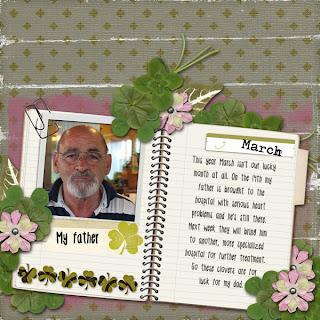 My father
March
This year March isn't our lucky
month at all. On the 14th my
father is brought to the
hospital with serious heart
problems and he's still there.
Next week they will bring him
to another, more specialized
hospital for further treatment.
So these clovers are for
luck for my dad.